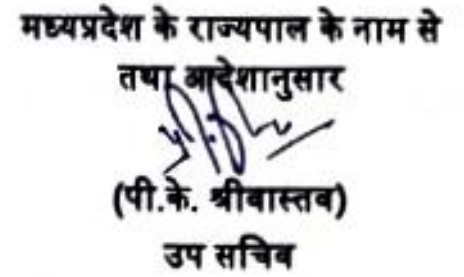 मध्यप्रदेश के राज्यपाल के नाम से
तथा आदेशानुसार
(पी.के. श्रीवास्तव)
उप सचिव